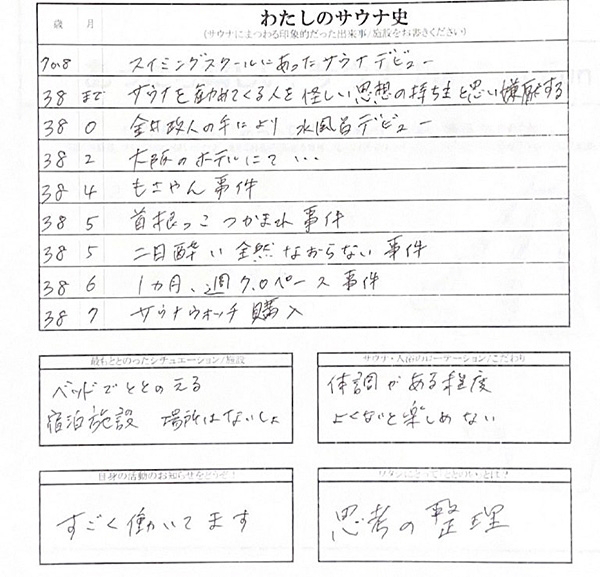 歳 月 わたしのサウナ史
(サウナにまつわる印象的だった出来事/施設をお書きください)
7or8 スイミングスクールにあったサウナデビュー
38 まで サウナを勧めてくる人を怪しい思想の持ち主と思い嫌厭する
38 0 金井政人の手により 水風呂デビュー
38 2 大阪のホテルにて・・・
38 4 もさやん事件
38 5 首根っこつかまれ事件
38 5 二日酔い全然なおらない事件
38 6 1カ月、週7.0ペース事件
38 7 サウナウォッチ購入
最もととのったシチュエーション/施設
ベッドでととのえる
宿泊施設 場所はないしょ
サウナ・入浴のローテーション/こだわり
体調がある程度
よくないと楽しめない
自身の活動のお知らせをどうぞ!
すごく働いてます
ワタシにとって「ととのい」とは?
思考の整理